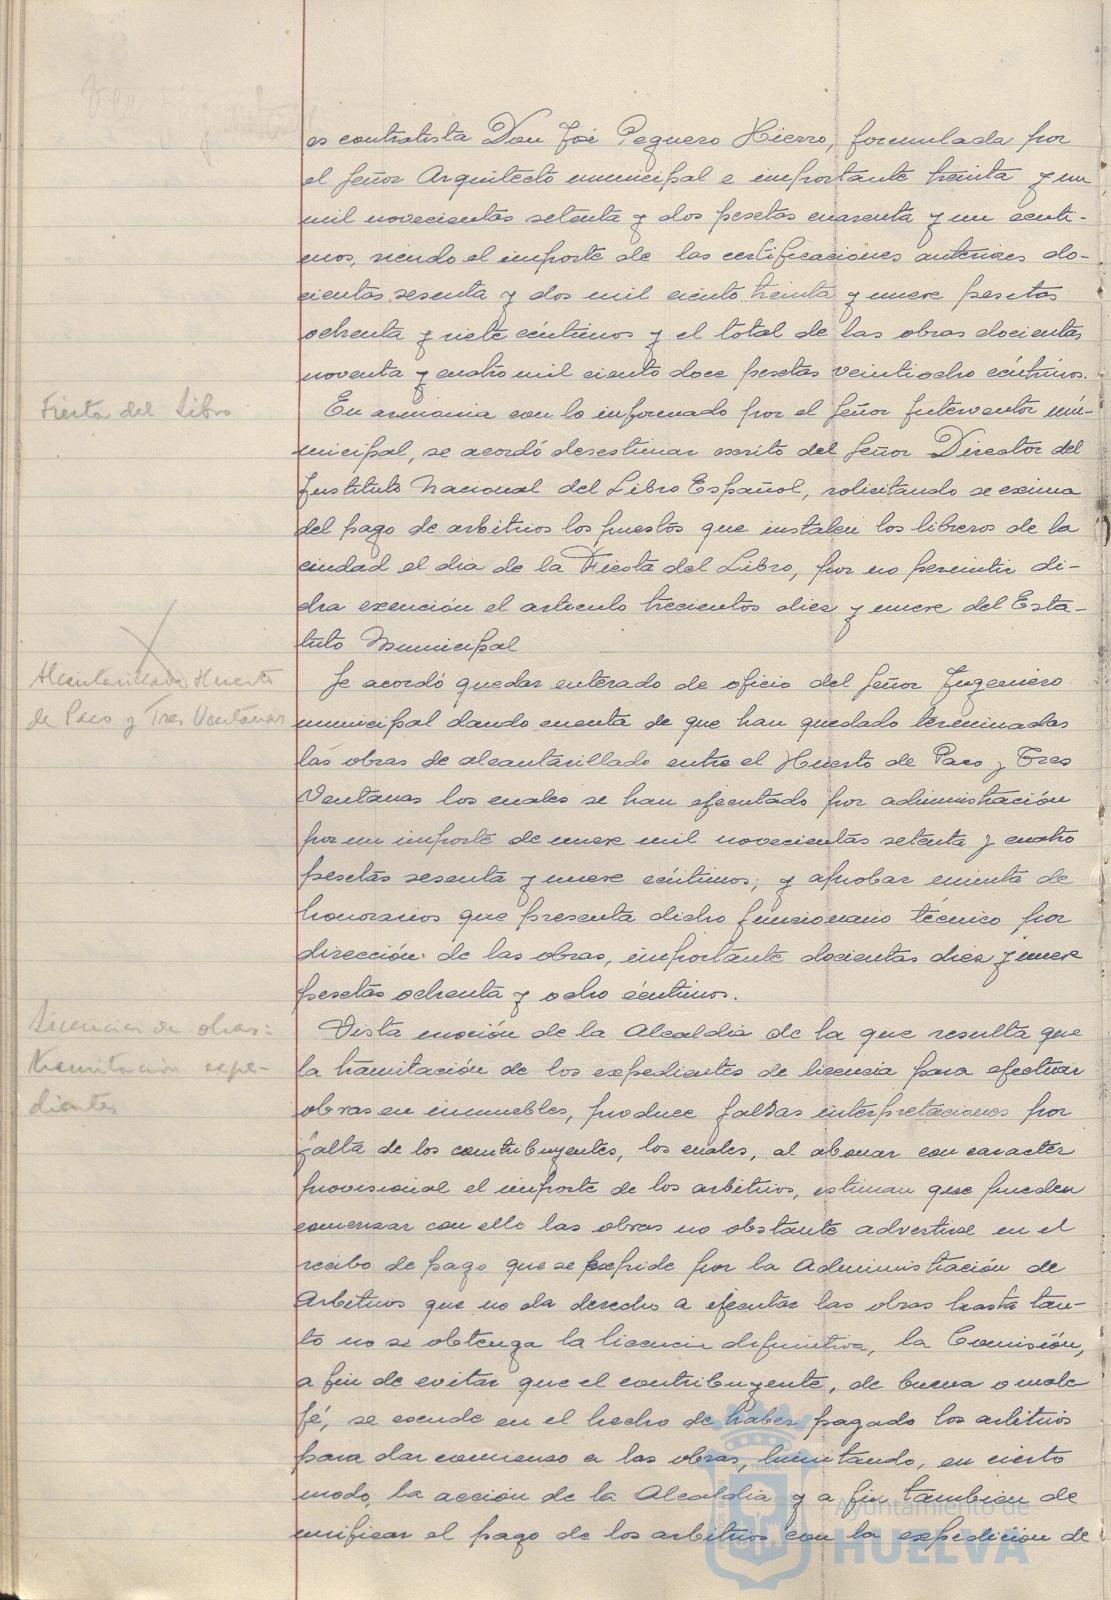 es contratista Don José Peguero Hierro, formulada por
el Señor Arquitecto municipal e importante treinta y un
mil novecientas setenta y dos pesetas cuarenta y un centi-
mos, siendo el importe de las certificaciones anteriores do-
cientas sesenta y dos mil ciento treinta y nueve pesetas
ochenta y siete céntimos y el total de las obras docientas
noventa y cuatro mil ciento doce pesetas veintiocho céntimos.
Fiesta del Libro
En armonia con lo informado por el Señor Interventor mu-
nicipal, se acordó desestimar escrito del Señor Director del
Instituto Nacional del Libro Español, solicitando se exima
del pago de arbitrios los puestos que instalen los libreros de la
ciudad el dia de la Fiesta del Libro, por no permitir di-
cha exención el articulo trecientos diez y nueve del Esta-
tuto Municipal
Alcantarillado Huerto
de Paco y Tres Ventanas
Se acordó quedar enterado de oficio del Señor Ingeniero
municipal dando cuenta de que han quedado terminadas
las obras de alcantarillado entre el Huerto de Paco y Tres
Ventanas los cuales se han efectuado por administración
por un importe de nueve mil novecientas setenta y cuatro
pesetas sesenta y nueve céntimos; y aprobar minuta de
honorarios que presenta dicho funcionario técnico por
dirección de las obras, importante docientas diez y nueve
pesetas ochenta y ocho céntimos.
Licencias de obras:
tramitación expe-
dientes
Vista moción de la Alcaldia de la que resulta que
la tramitación de los expedientes de licencia para efectuar
obras en inmuebles, produce falsas interpretaciones por
falta de los contribuyentes, los cuales, al abonar con caracter
provisional el importe de los arbitrios, estiman que pueden
comenzar con ello las obras no obstante advertirse en el
recibo de pago que se expide por la Administración de
Arbitrios que no da derecho a ejecutar las obras hasta tan-
to no se obtenga la licencia definitiva, la Comisión,
a fin de evitar que el contribuyente, de buena o mala
fé, se escude en el hecho de haber pagado los arbitrios
para dar comienzo a las obras, limitando, en cierto
modo, la acción de la Alcaldia y a fin tambien de
unificar el pago de los arbitrios con la expedición de
Ayuntamiento de
HUELVA